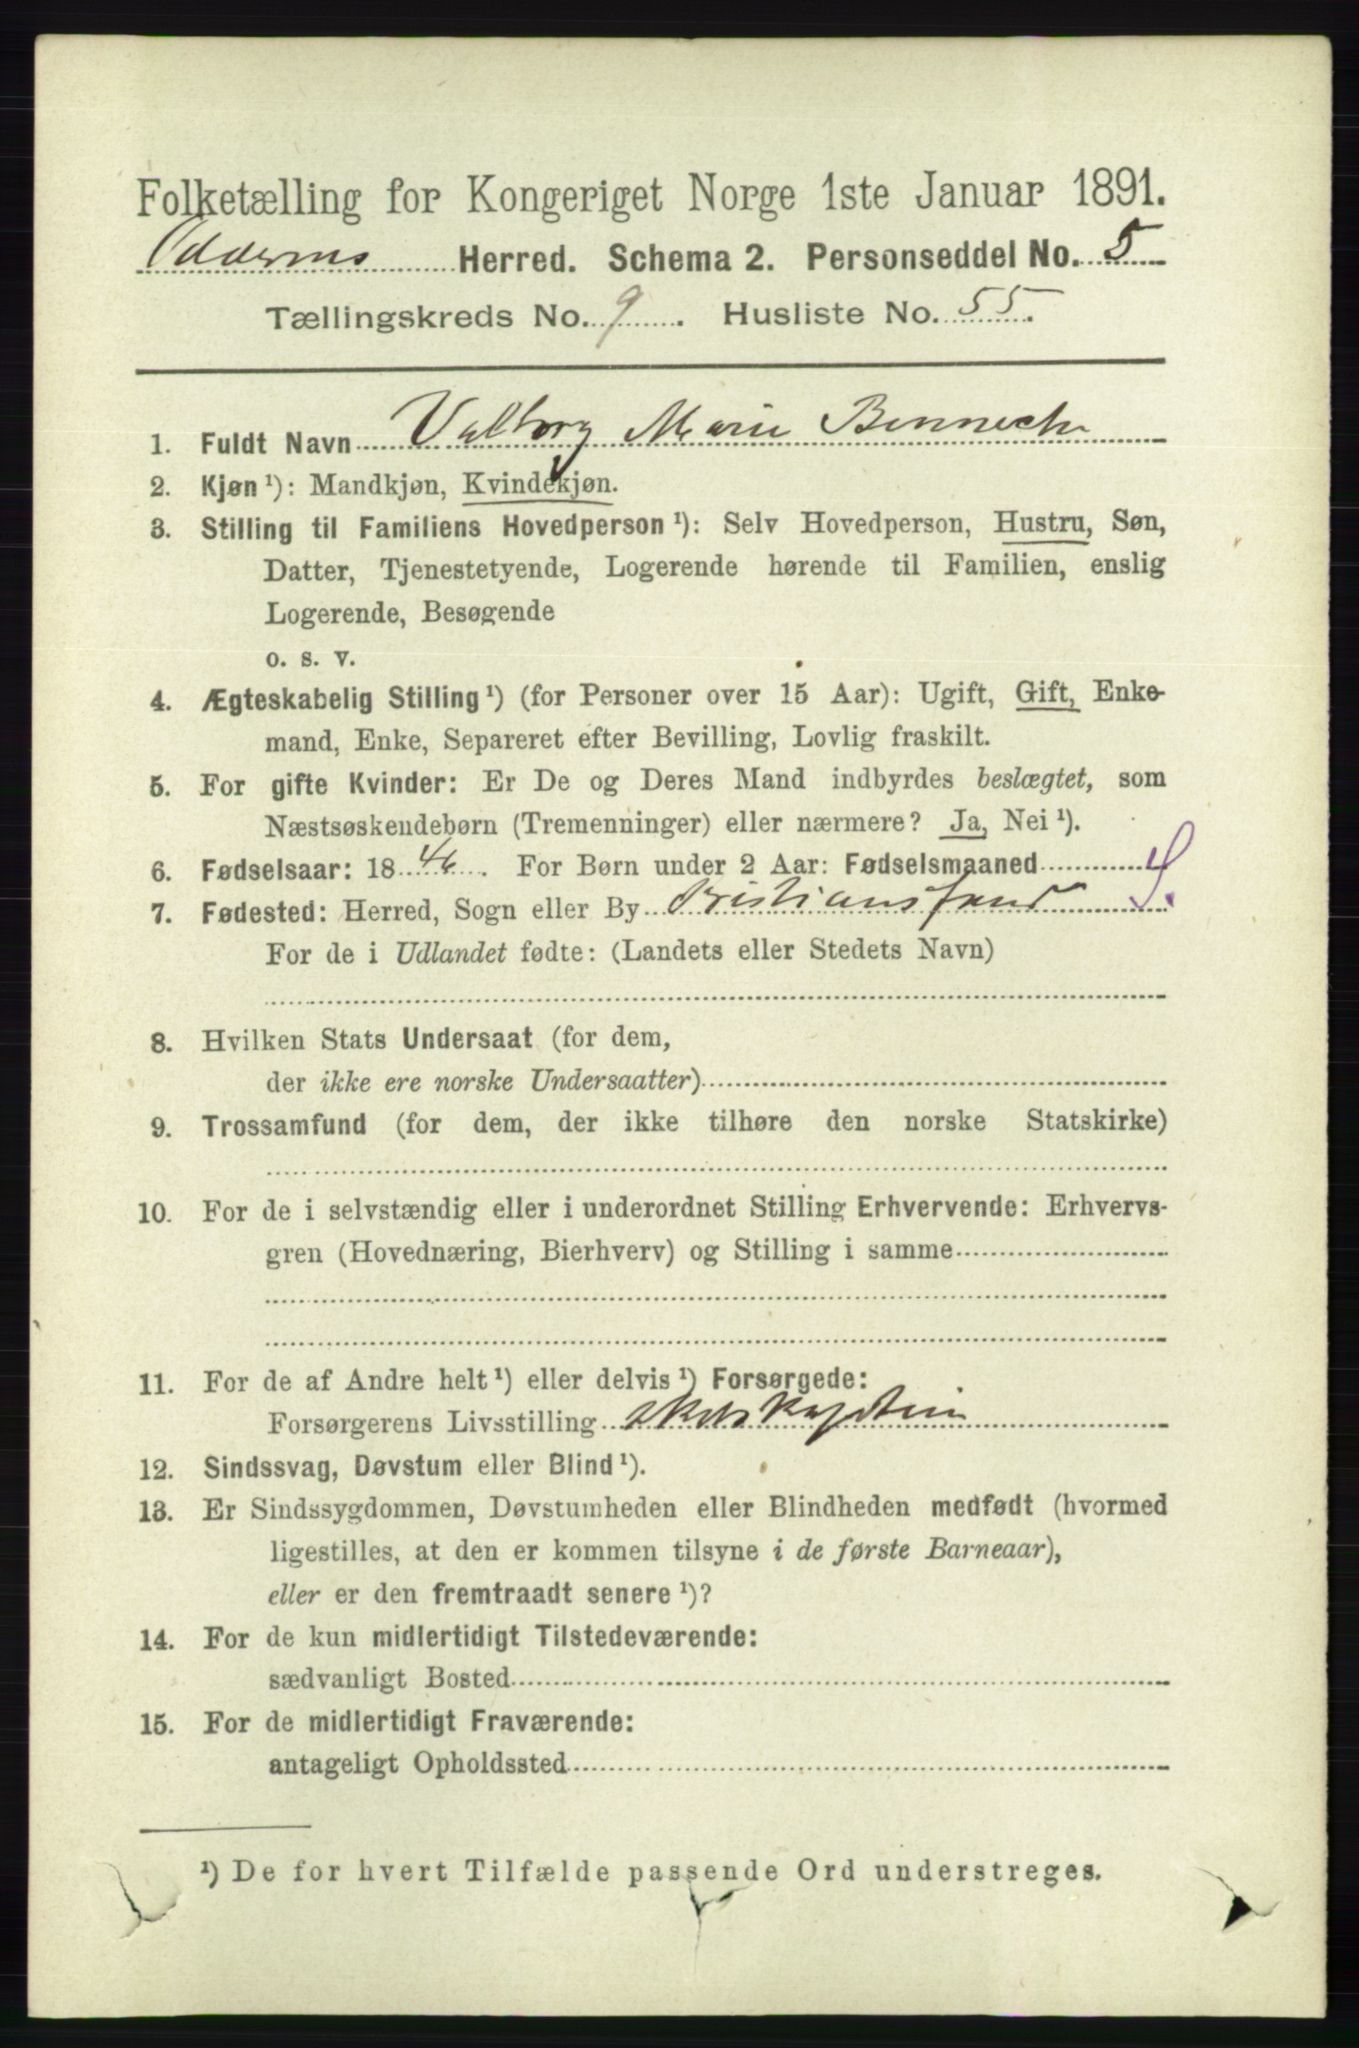 Folketælling for Kongeriget Norge 1ste Januar 1891.
Oddernes Herred. Schema 2. Personseddel No. 5
Tællingskreds No. 9. Husliste No. 55.
1. Fuldt Navn Valborg Marie Benneche
2. Kjøn ¹): Mandkjøn, Kvindekjøn.
3. Stilling til Familiens Hovedperson ¹): Selv Hovedperson, Hustru, Søn,
Datter, Tjenestetyende, Logerende hørende til Familien, enslig
Logerende, Besøgende
o. s. v.
4. Ægteskabelig Stilling ¹) (for Personer over 15 Aar): Ugift, Gift, Enke-
mand, Enke, Separeret efter Bevilling, Lovlig fraskilt.
5. For gifte Kvinder: Er De og Deres Mand indbyrdes beslægtet, som
Næstsøskendebørn (Tremenninger) eller nærmere? Ja, Nei ¹).
6. Fødselsaar: 1846. For Børn under 2 Aar: Fødselsmaaned
7. Fødested: Herred, Sogn eller By Kristianssand
For de i Udlandet fødte: (Landets eller Stedets Navn)
8. Hvilken Stats Undersaat (for dem,
der ikke ere norske Undersaatter)
9. Trossamfund (for dem, der ikke tilhøre den norske Statskirke)
10. For de i selvstændig eller i underordnet Stilling Erhvervende: Erhvervs-
gren (Hovednæring, Bierhverv) og Stilling i samme
11. For de af Andre helt ¹) eller delvis ¹) Forsørgede:
Forsørgerens Livsstilling
12. Sindssvag, Døvstum eller Blind ¹).
13. Er Sindssygdommen, Døvstumheden eller Blindheden medfødt (hvormed
ligestilles, at den er kommen tilsyne i de første Barneaar),
eller er den fremtraadt senere ¹)?
14. For de kun midlertidigt Tilstedeværende:
sædvanligt Bosted
15. For de midlertidigt Fraværende:
antageligt Opholdssted
¹) De for hvert Tilfælde passende Ord understreges.